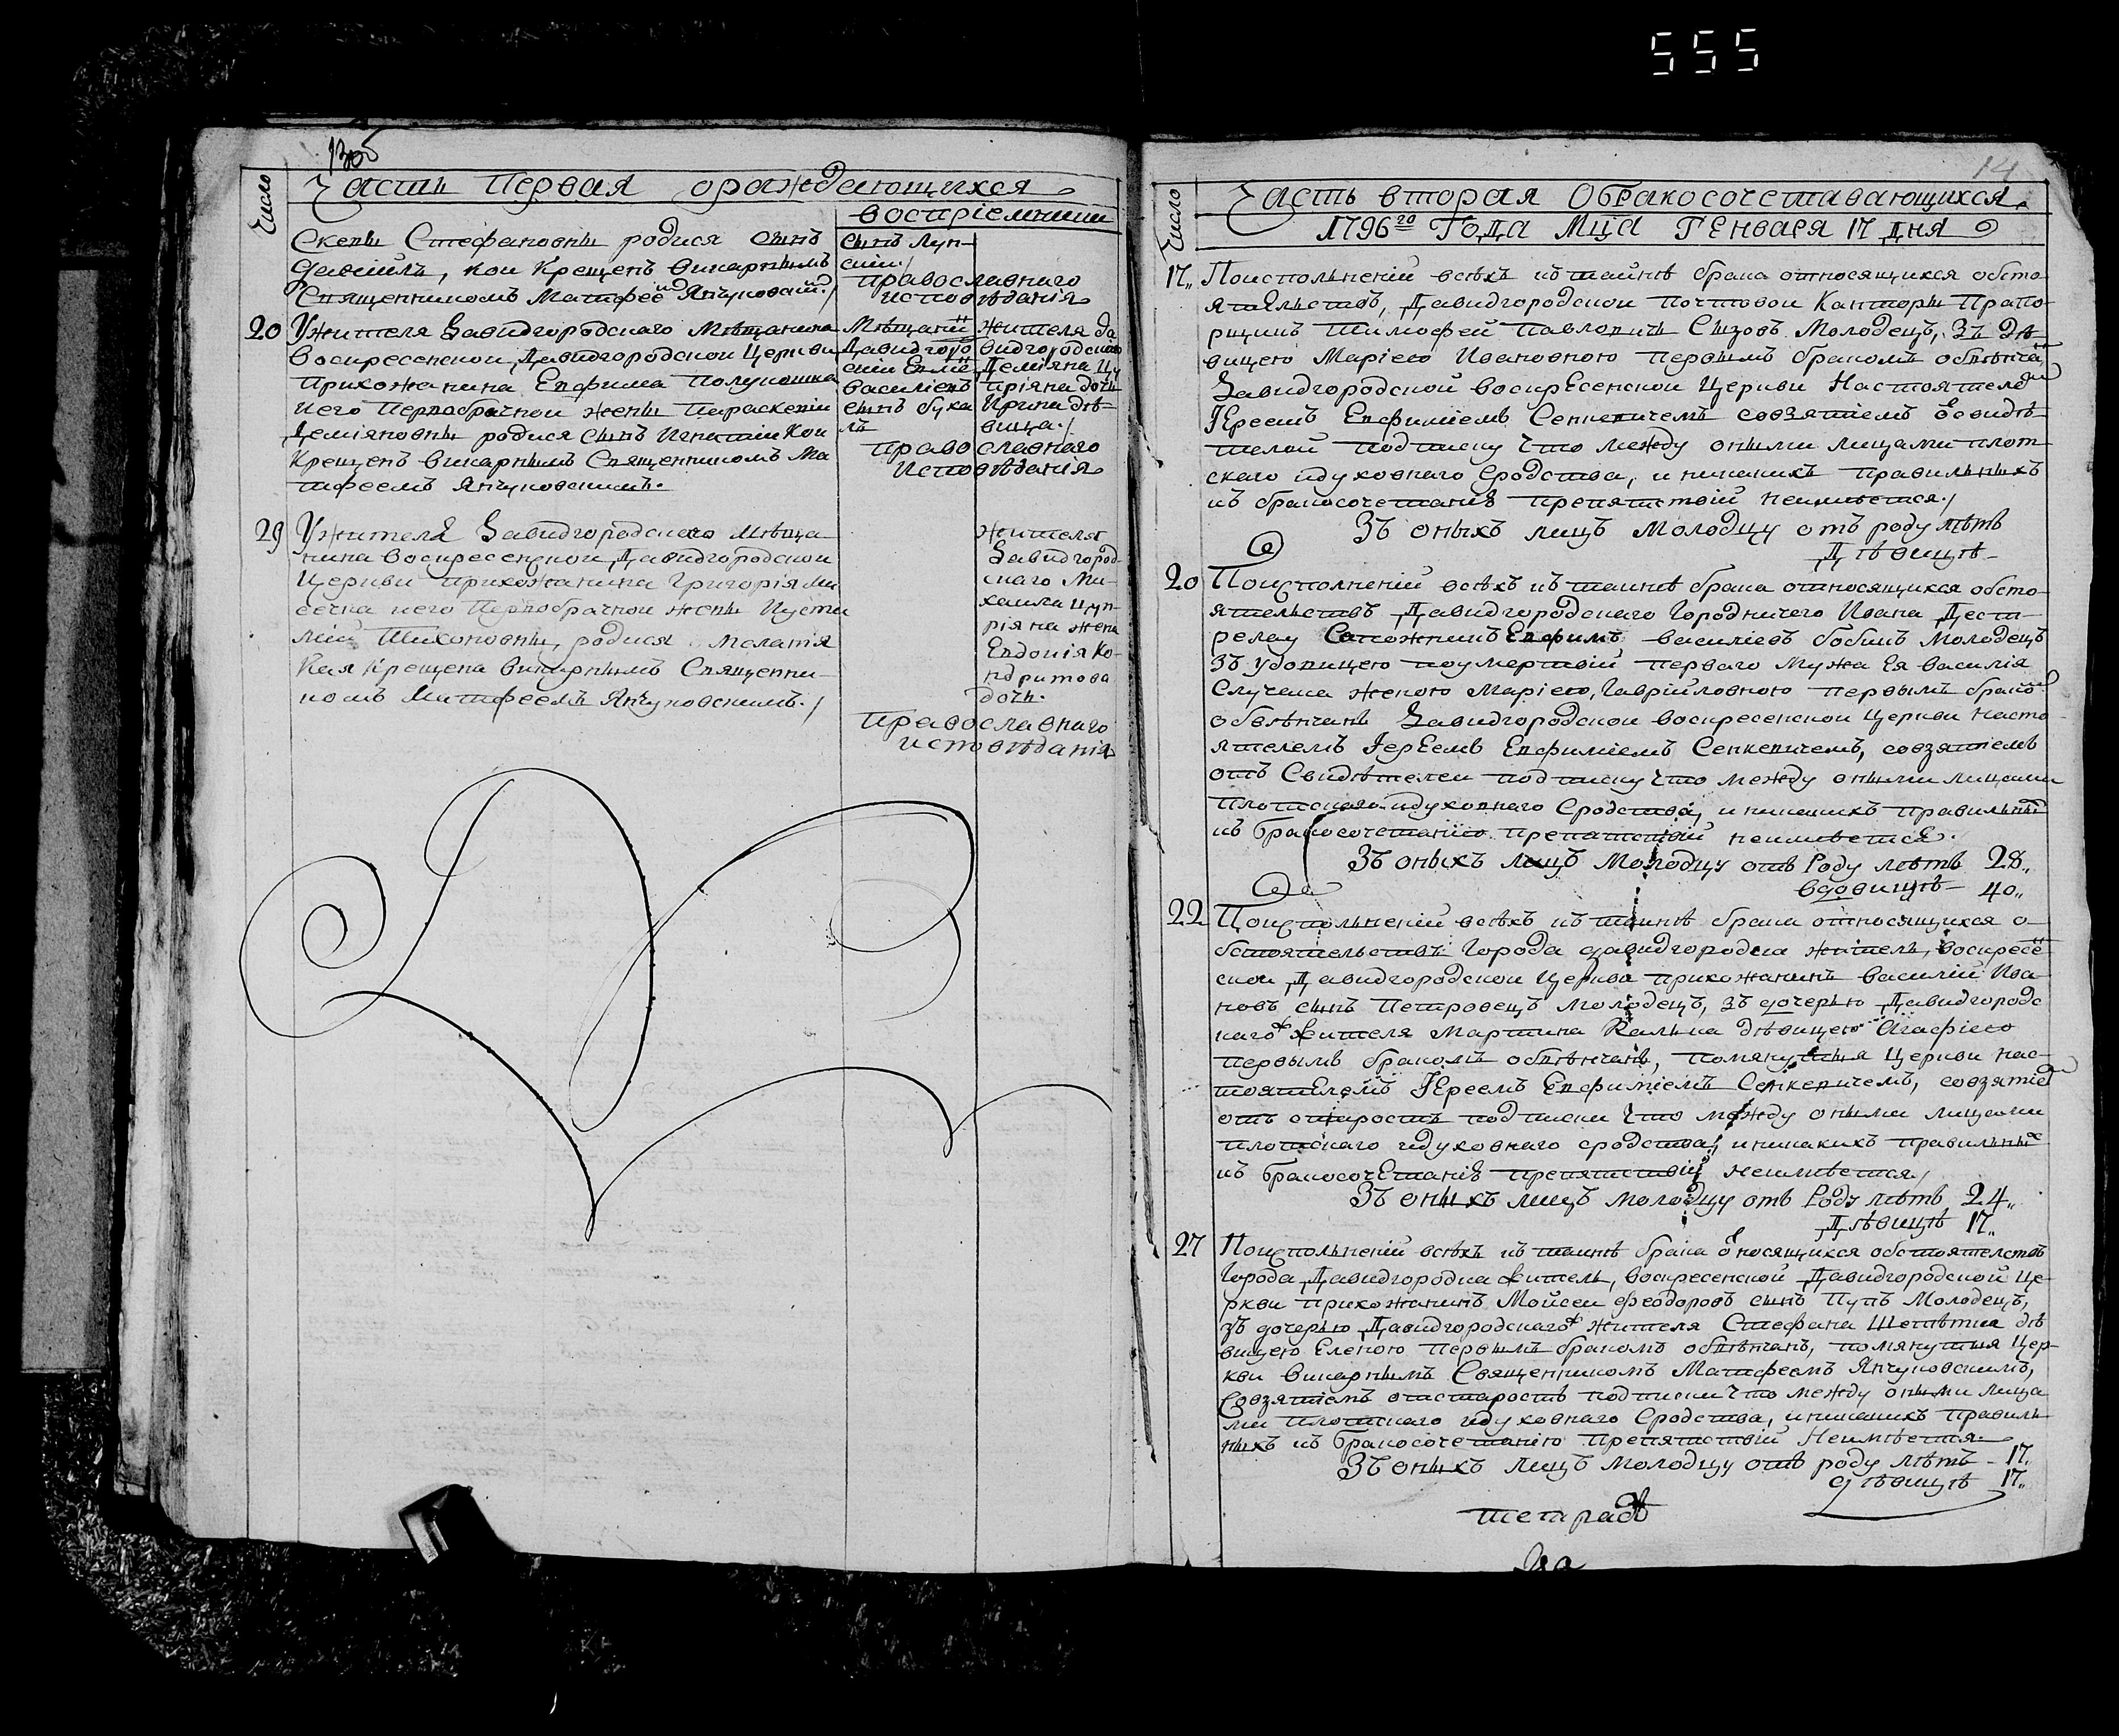 555
13об
Число
Часть Первая ораждающихся
воспріемники
Стефановны родися сынъ
Даніилъ, кои Крещенъ викарнымъ
Священникомъ Матфеемъ
сынъ Луп-
православнаго
исповѣданія
20 Ужителя Давидгородскаго Мѣщанина
Воскресенской Давидгородской Церкви
Прихожанина Евфима Полукошка
иего Первобрачной жены Параскевіи
Деміяновны родися сынъ Игнатіи Кои
Крещенъ викарнымъ Священникомъ Ма
тфеемъ Янчуковскимъ.
Мѣщанинъ
Давидгоро
василіевъ
сынъ бука
лъ
жителя да
видгородскаго
Деміяна Цу
пріяна дочь
Ирина дѣ-
вица
православнаго
исповѣданія
29 Ужителя Давидгородскаго мѣща
нина воскресенской Давидгородской
Церкви прихожанина Григорія Ми
иего Первобрачной жены Иусти
ніи Тихоновны, родися Малатія
Кая Крещена викарнымъ Священни-
комъ Матфеемъ Янчуковскимъ.
жителя
Давидгород-
скаго Ми-
хаила
жена
Евдокія Ко-
ндратова
дочь.
Православнаго
исповѣданія
14
Число
Часть вторая Обракосочетавающихся
1796го Года Мца Генваря 17 дня
17„ Поисполненіи всѣхъ къ таинѣ брака относящихся обсто-
ятельствъ, Давидгородскои Почтовои Канторы Прапо-
рщикъ Тимофей Павловичь Сызовъ Молодецъ, Зъ Дѣ-
вицею Маріею Ивановною первымъ бракомъ обвѣнчанъ
Давидгородской воскресенской Церкви Настоятелемъ
Іереемъ Евфиміемъ Сенкевичемъ совзятіемъ о свидѣ-
телей подписку что между оными лицами плот-
скаго идуховнаго Сродства, и никакихъ правильныхъ
къ бракосочетанію препятствій неимѣется
Зъ оныхъ лицъ Молодцу отъ роду лѣтъ
Дѣвицѣ
20 Поисполненіи всѣхъ къ таинѣ брака относящихся обсто-
ятельствъ Давидгородскаго Городничего Ивана
Сапожникъ Евфимъ василіевъ бобикъ Молодецъ
Зъ удовицею поумертвіи перваго Мужа Ея василія
Случака женою Маріею, Гавріиловною первымъ бракомъ
обвѣнчанъ Давидгородской воскресенской Церкви Насто-
ятелемъ Іереемъ Евфиміемъ Сенкевичемъ, совзятіемъ
отъ Свидѣтелеи подписку что между оными лицами
плотскаго идуховнаго Сродства, и никакихъ правильныхъ
къ бракосочетанію препятствій неимѣется.
Зъ оныхъ лицъ Молодцу отъ Роду лѣтъ 28„
вдовицѣ 40„
22 Поисполненіи всѣхъ къ таинѣ брака относящихся о-
бстоятельствъ Города давидгородка житель, воскресен-
скои Давидгородскои Церкви прихожанинъ василіи Ива-
новъ сынъ Петровецъ Молодецъ, зъ дочерью Давидгородс
каго жителя Мартина дѣвицею Агафіею
первымъ бракомъ обвѣнчанъ, помянутыя Церкви нас-
тоятелемъ Іереемъ Евфиміемъ Сенкевичемъ, совзятіемъ
отъ старостъ подписки что между оными лицами
плотскаго идуховнаго сродства, иникакихъ правильныхъ
къ бракосочетанію препятствій неимѣется
Зъ оныхъ лицъ молодцу отъ Роду лѣтъ 24„
Дѣвицѣ 17„
27 Поисполненіи всѣхъ къ таинѣ брака относящихся обстоятелствъ
Города Давидгородка житель, воскресенской Давидгородской Це-
ркви прихожанинъ Мойсеи Феодоровъ сынъ Пупъ Молодецъ,
зъ дочерью Давидгородскаго жителя Стефана дѣ
вицею Еленою Первымъ бракомъ обвѣнчанъ, помянутыя Цер-
кви викарнымъ Священникомъ Матфеемъ Янчуковскимъ,
Совзятіемъ отстаростъ подписки что между оными лица
ми плотскаго идуховнаго Сродства, иникакихъ правиль
ныхъ къ бракосочетанію препятствій Неимѣется
Зъ оныхъ лицъ молодцу отъ роду лѣтъ - 17„
дѣвицѣ 17„